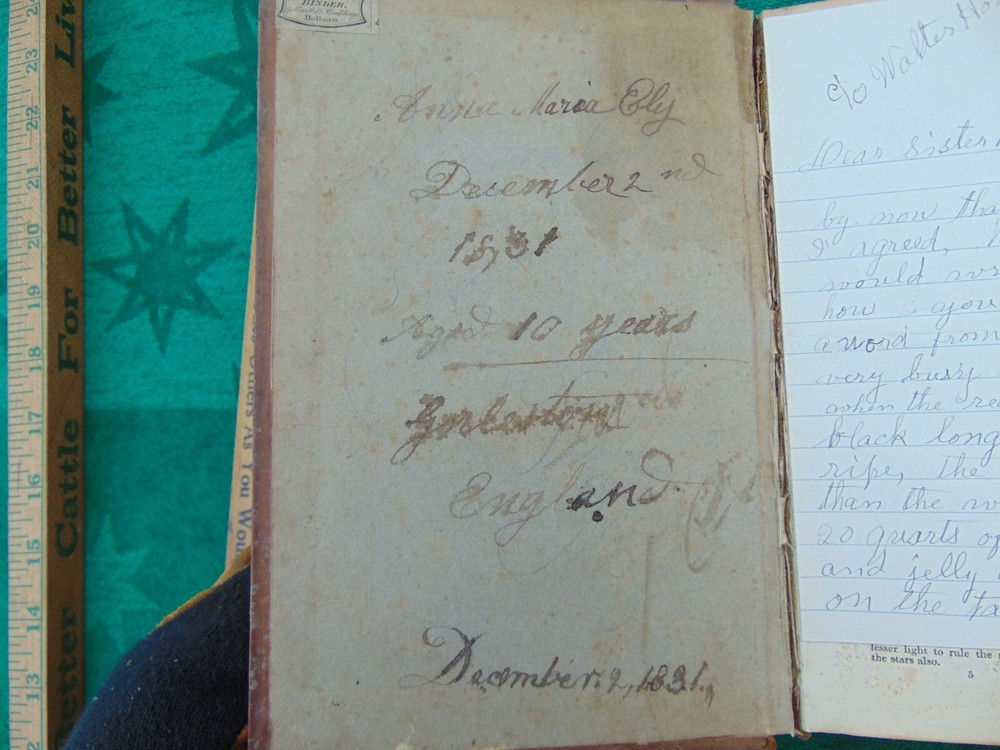 BINDER,
Anna Maria Ely
December 2nd
1831
Aged 10 years
England.
December 2, 1831.
c/o Walter
Dear Sister
by now tha
I agreed,
would
how you
a word from
very busy
when the re
black long
ripe, the
than the
20 quarts of
and jelly
on the ta
lesser light to rule the
the stars also.
5
Better Cattle For Better Liv
Others As You Wou
13 14 15 16 17 18 19 20 21 22 23